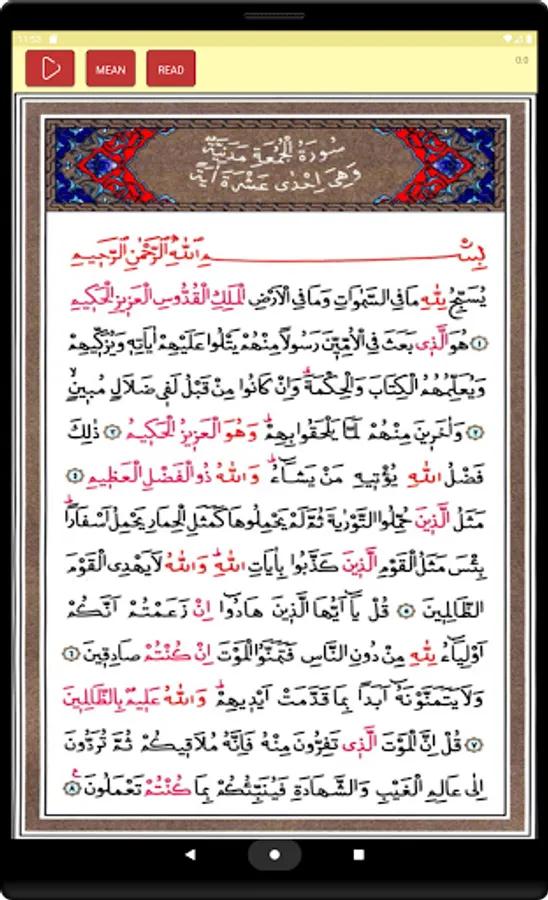 11:53
MEAN
READ
0:0
سُورَةُ الْجُمُعَةِ مَدَنِيَّةٌ
وَهِىَ اِحْدٰى عَشْرَةَ اٰيَةً
بِسْمِ اللّٰهِ الرَّحْمٰنِ الرَّحِيمِ
يُسَبِّحُ لِلّٰهِ مَا فِى السَّمٰوَاتِ وَمَا فِى الْاَرْضِ الْمَلِكِ الْقُدُّوسِ الْعَزِيزِ الْحَكِيمِ
١ هُوَ الَّذٖى بَعَثَ فِى الْاُمِّيّٖنَ رَسُولًا مِنْهُمْ يَتْلُوا عَلَيْهِمْ اٰيَاتِهٖ وَيُزَكّٖيهِمْ
وَيُعَلِّمُهُمُ الْكِتَابَ وَالْحِكْمَةَ وَاِنْ كَانُوا مِنْ قَبْلُ لَفٖى ضَلَالٍ مُبٖينٍ
٢ وَاٰخَرٖينَ مِنْهُمْ لَمَّا يَلْحَقُوا بِهِمْ وَهُوَ الْعَزِيزُ الْحَكِيمُ ٣ ذٰلِكَ
فَضْلُ اللّٰهِ يُؤْتٖيهِ مَنْ يَشَاءُ وَاللّٰهُ ذُو الْفَضْلِ الْعَظٖيمِ ٤
مَثَلُ الَّذٖينَ حُمِّلُوا التَّوْرٰيةَ ثُمَّ لَمْ يَحْمِلُوهَا كَمَثَلِ الْحِمَارِ يَحْمِلُ اَسْفَارًا
بِئْسَ مَثَلُ الْقَوْمِ الَّذٖينَ كَذَّبُوا بِاٰيَاتِ اللّٰهِ وَاللّٰهُ لَا يَهْدِى الْقَوْمَ
الظَّالِمٖينَ ٥ قُلْ يَا اَيُّهَا الَّذٖينَ هَادُوا اِنْ زَعَمْتُمْ اَنَّكُمْ
اَوْلِيَاءُ لِلّٰهِ مِنْ دُونِ النَّاسِ فَتَمَنَّوُا الْمَوْتَ اِنْ كُنْتُمْ صَادِقٖينَ ٦
وَلَا يَتَمَنَّوْنَهُ اَبَدًا بِمَا قَدَّمَتْ اَيْدٖيهِمْ وَاللّٰهُ عَلٖيمٌ بِالظَّالِمٖينَ
٧ قُلْ اِنَّ الْمَوْتَ الَّذٖى تَفِرُّونَ مِنْهُ فَاِنَّهُ مُلَاقٖيكُمْ ثُمَّ تُرَدُّونَ
اِلٰى عَالِمِ الْغَيْبِ وَالشَّهَادَةِ فَيُنَبِّئُكُمْ بِمَا كُنْتُمْ تَعْمَلُونَ ٨